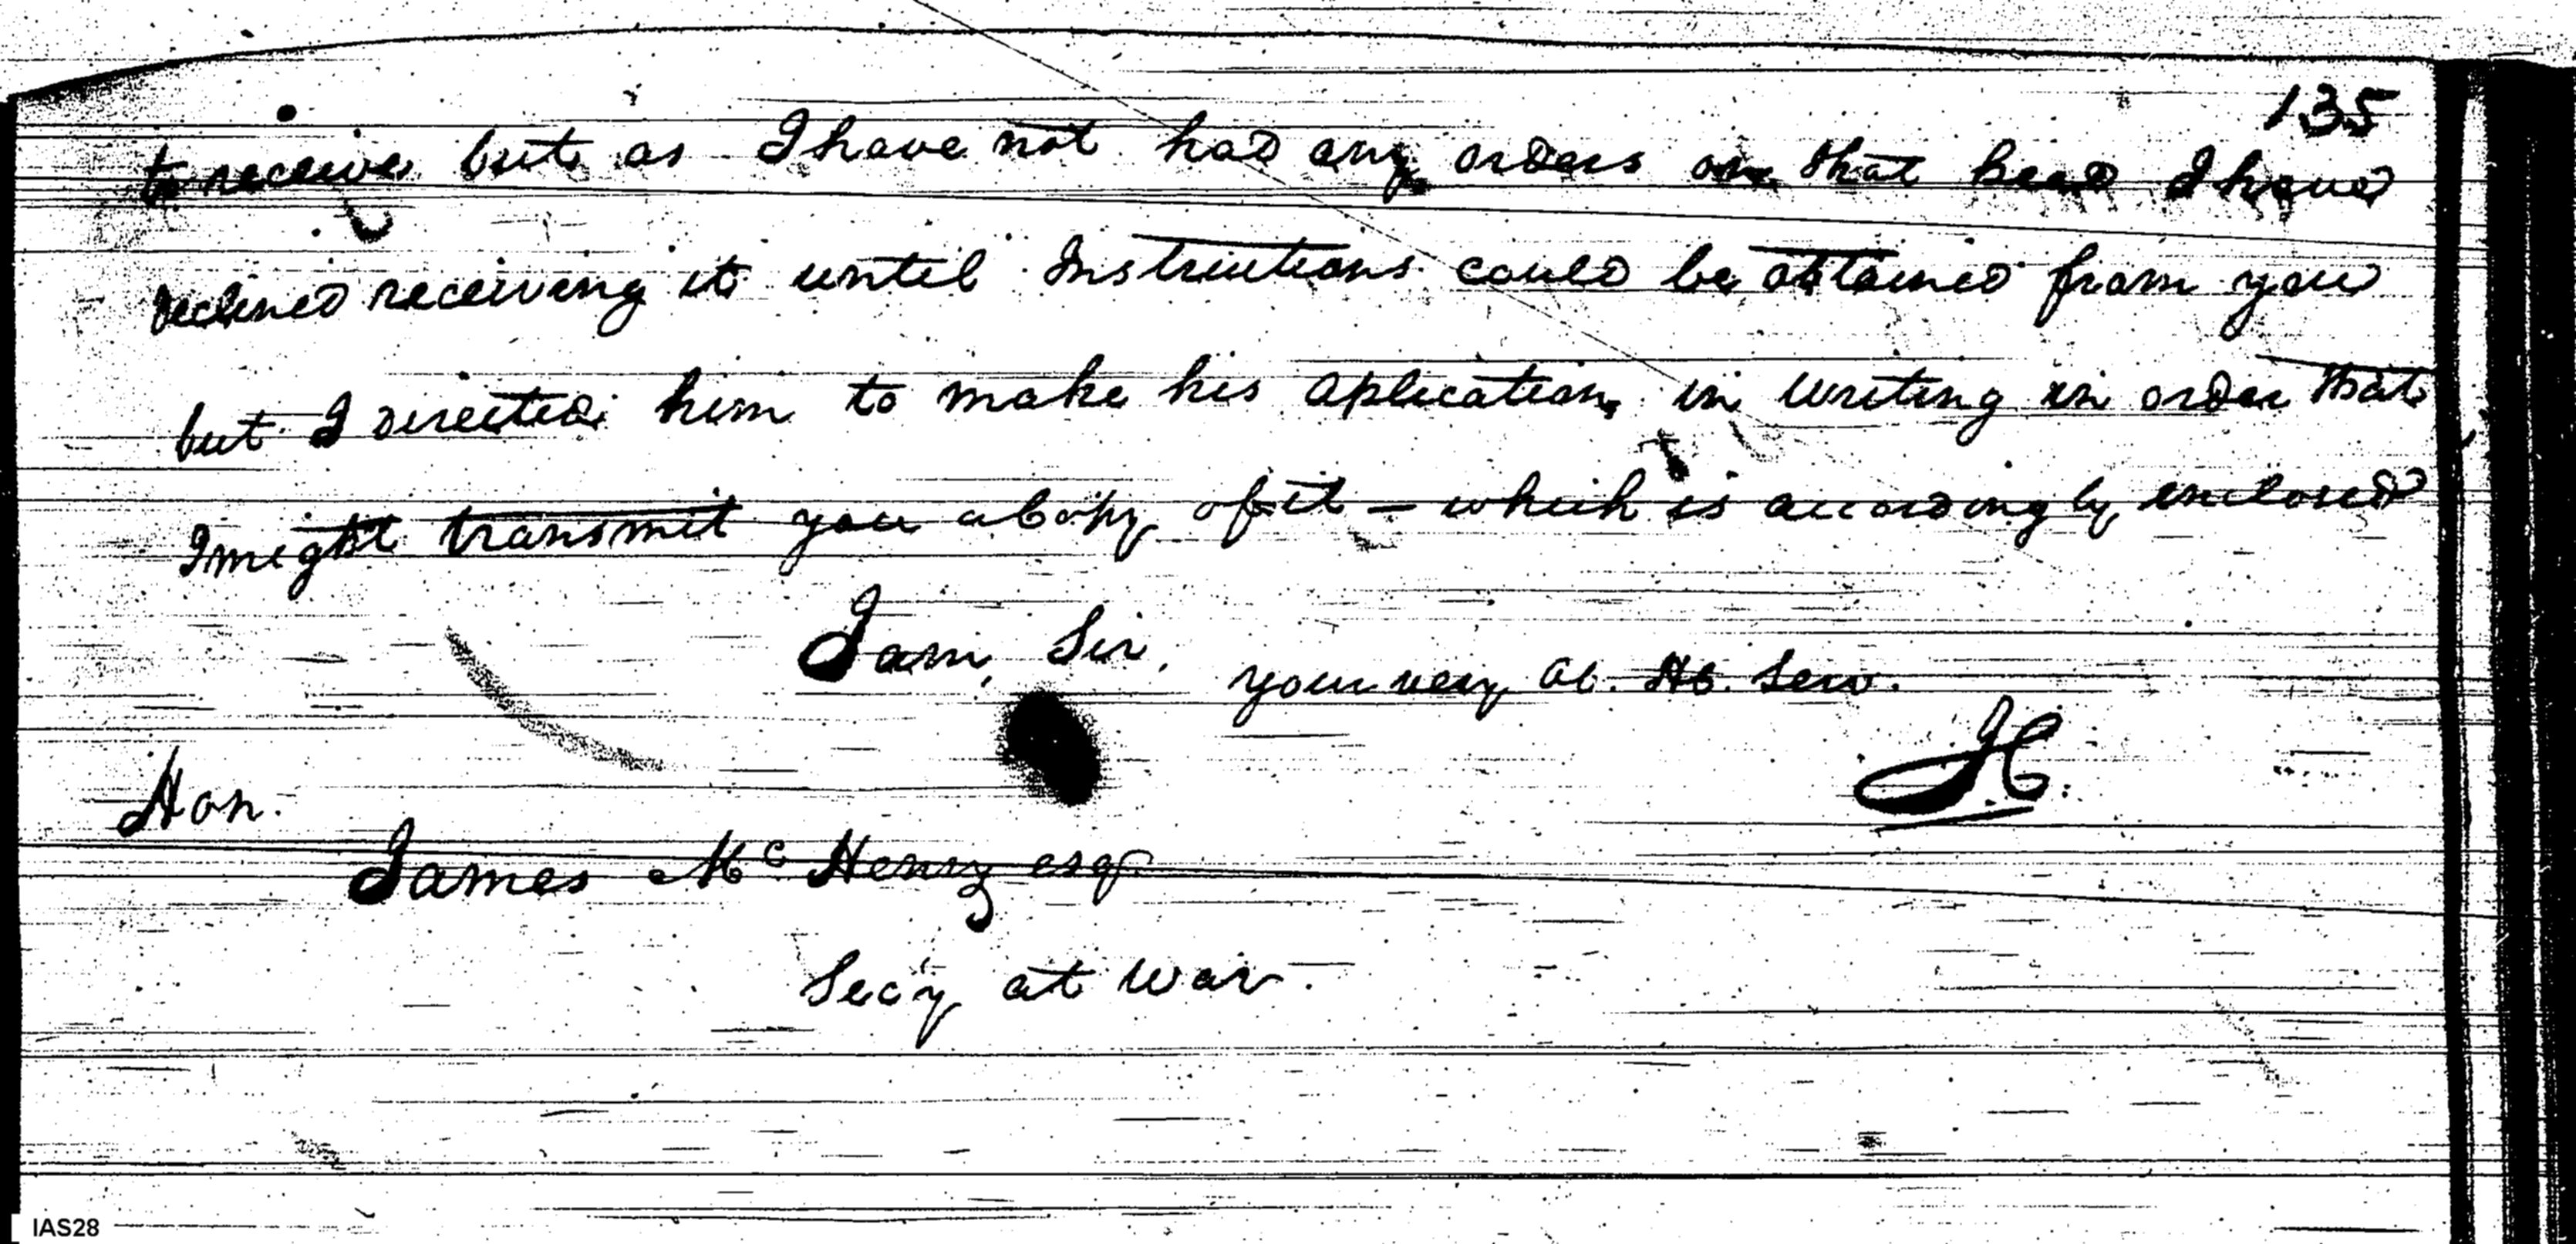 135
to receive but as I have not had any orders on that head I have
declined receiving it until Instructions could be obtained from you
but I directed him to make his aplication in writing in order that
I might transmit you a Copy of it – which is accordingly enclosed
I am, Sir,
your very Ob. Hb. Serv.
Hon.
James McHenry esqr
Secy at War.
IAS28